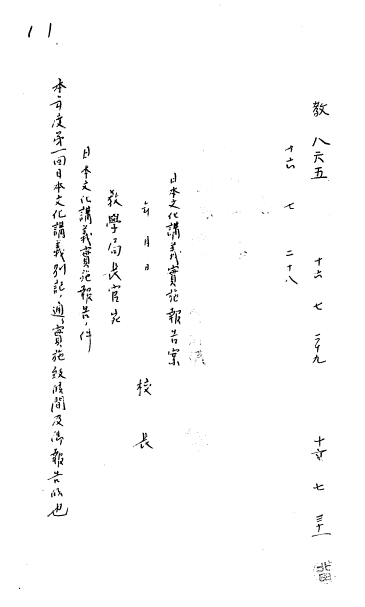 11
教 八六五 十六 七 二十九 十六 七 三十一
十六 七 二十八
日本文化講義實施報告案
年月日
校長
教學局長官宛
日本文化講義實施報告ノ件
本年度第一回日本文化講義別記ノ通リ實施致候間及御報告候也